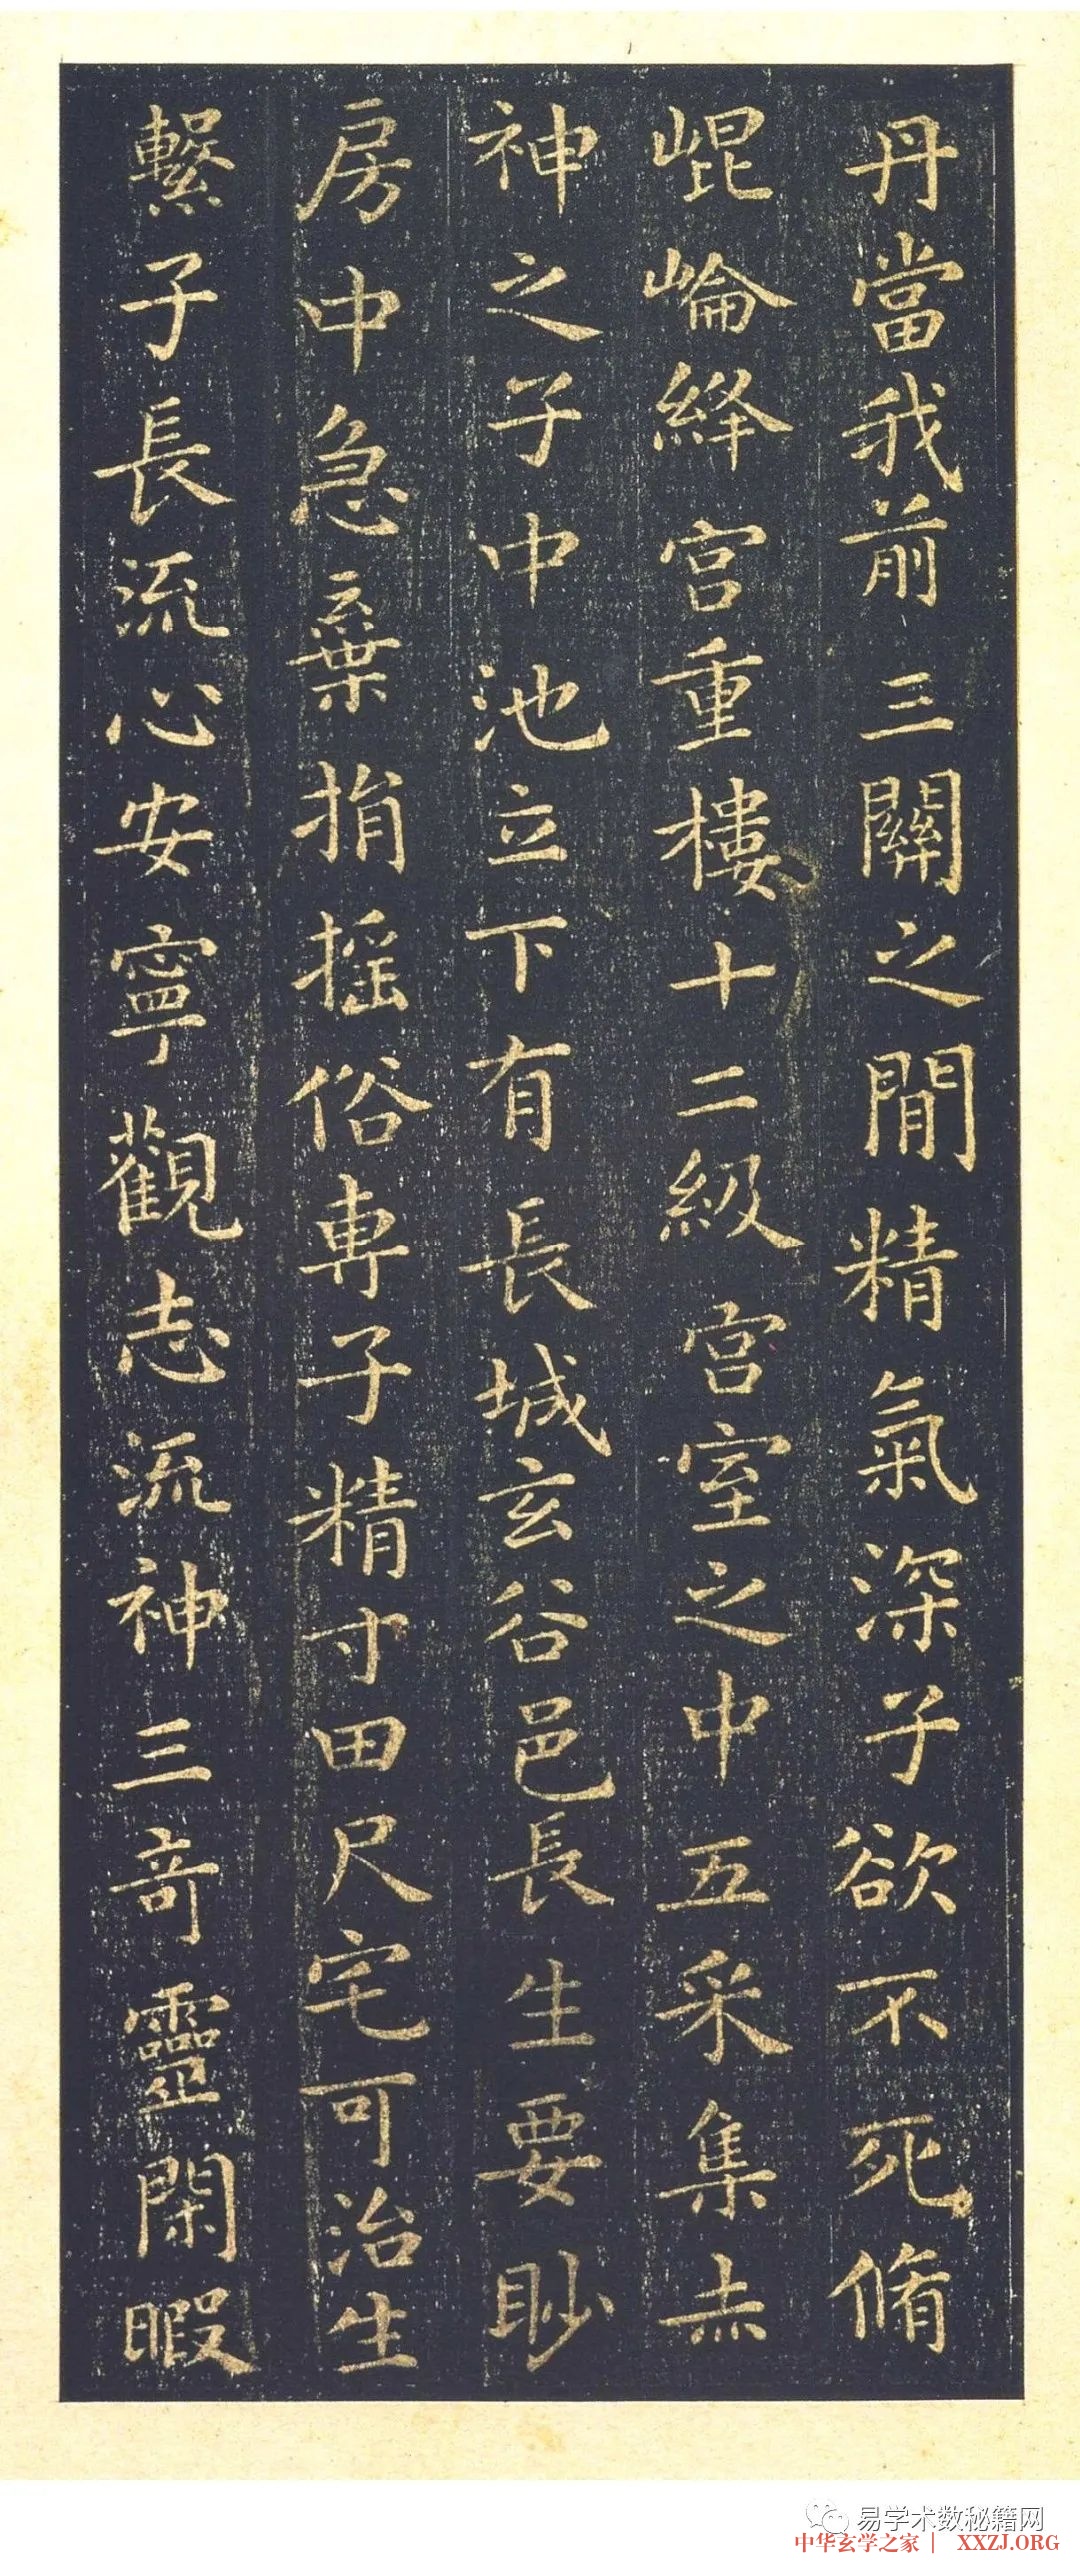 丹當我前三關之間精氣深子欲不死脩
崐崘絳宮重樓十二級宮室之中五采集赤
神之子中池立下有長城玄谷邑長生要眇
房中急棄捐搖俗專子精寸田尺宅可治生
繫子長流心安寧觀志流神三奇靈閑暇
易学术数秘籍网
中华玄学之家｜ XXZJ.ORG